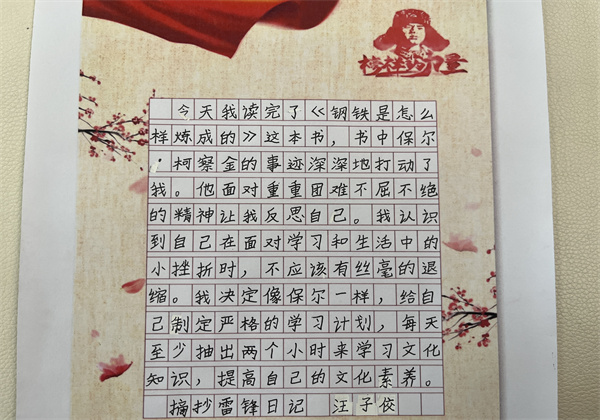 榜样的力量
今天我读完了《钢铁是怎么
样炼成的》这本书，书中保尔
·柯察金的事迹深深地打动了
我。他面对重重困难不屈不绝
的精神让我反思自己。我认识
到自己在面对学习和生活中的
小挫折时，不应该有丝毫的退
缩。我决定像保尔一样，给自
己制定严格的学习计划，每天
至少抽出两个小时来学习文化
知识，提高自己的文化素养。
摘抄雷锋日记 汪子佼